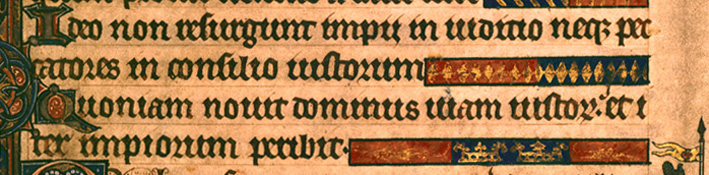 Ideo non resurgunt impii in iudicio neqꝫ pec
catores in consilio iustorum
Quoniam nouit dominus uiam iustoꝝ: et i
ter impiorum peribit.